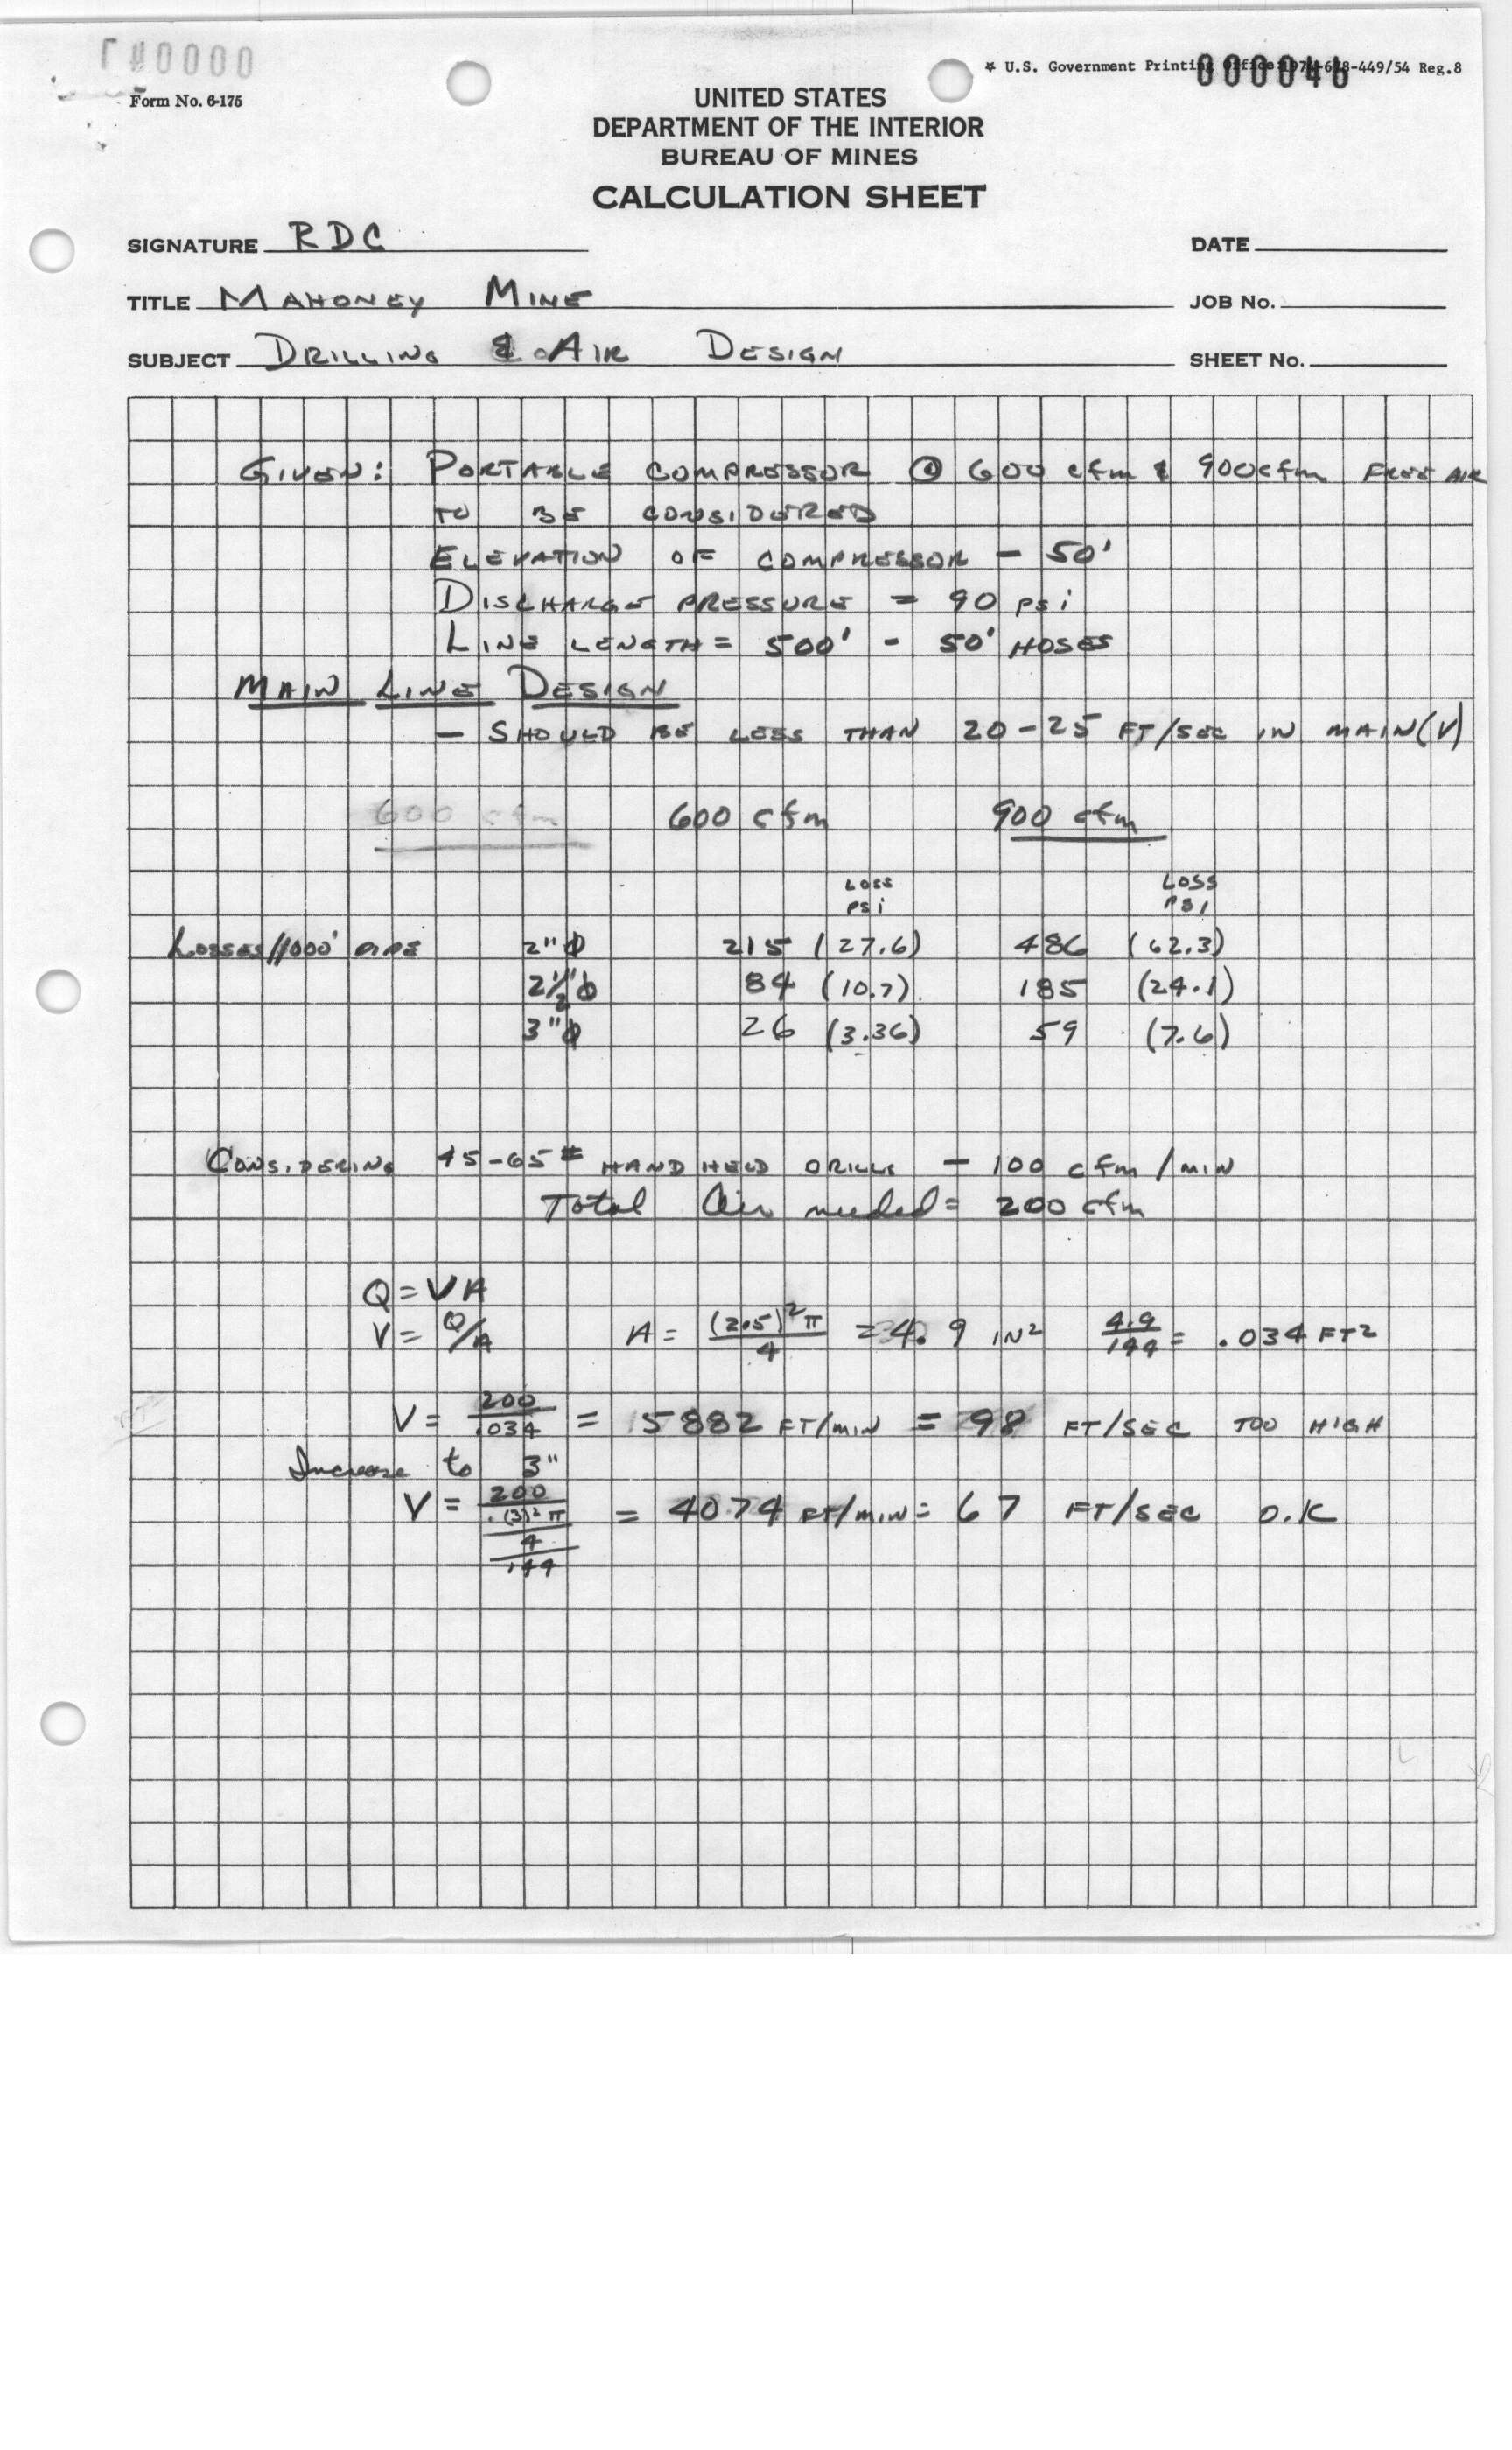 0000
000046
* U.S. Government Printing Office: 1974-678-449/54 Reg.8
Form No. 6-175
UNITED STATES
DEPARTMENT OF THE INTERIOR
BUREAU OF MINES
CALCULATION SHEET
SIGNATURE RDC DATE
TITLE MAHONEY MINE JOB No.
SUBJECT DRILLING & AIR DESIGN SHEET No.
GIVEN: PORTABLE COMPRESSOR @ 600 cfm & 900 cfm FREE AIR
TO BE CONSIDERED
ELEVATION OF COMPRESSOR - 50'
DISCHARGE PRESSURE = 90 psi
LINE LENGTH = 500' - 50' HOSES
MAIN LINE DESIGN
- SHOULD BE LESS THAN 20-25 FT/SEC IN MAIN (V)
600 cfm 600 cfm 900 cfm
LOSS LOSS
PSi PSi
LOSSES/1000' PIPE 2"φ 215 (27.6) 486 (62.3)
2½"φ 84 (10.7) 185 (24.1)
3"φ 26 (3.36) 59 (7.6)
CONSIDERING 45-65# HAND HELD DRILLS - 100 cfm/MIN
Total Air needed = 200 cfm
Q = VA
V = Q/A A = (2.5)²π/4 = 4.9 IN² 4.9/144 = .034 FT²
V = 200/.034 = 5882 FT/MIN = 98 FT/SEC TOO HIGH
Increase to 3"
V = 200/(3)²π/4/144 = 4074 FT/MIN = 67 FT/SEC O.K